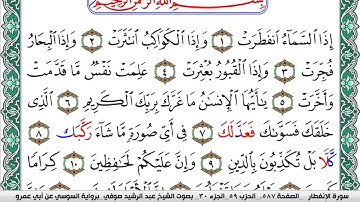 بِسْمِ اللَّهِ الرَّحْمَٰنِ الرَّحِيمِ
إِذَا السَّمَآءُ انفَطَرَتْ ١ وَإِذَا الْكَوَاكِبُ انتَثَرَتْ ٢ وَإِذَا الْبِحَارُ
فُجِّرَتْ ٣ وَإِذَا الْقُبُورُ بُعْثِرَتْ ٤ عَلِمَتْ نَفْسٌ مَّا قَدَّمَتْ
وَأَخَّرَتْ ٥ يَٰٓأَيُّهَا الْإِنسَٰنُ مَا غَرَّكَ بِرَبِّكَ الْكَرِيمِ ٦ الَّذِى
خَلَقَكَ فَسَوَّىٰكَ فَعَدَّلَكَ ٧ فِىٓ أَىِّ صُورَةٍ مَّا شَآءَ رَكَّبَكَ ٨
كَلَّا بَلْ تُكَذِّبُونَ بِالدِّينِ ٩ وَإِنَّ عَلَيْكُمْ لَحَٰفِظِينَ ١٠ كِرَامًا
سورة الإنفطار _ الصفحة ٥٨٧ الحزب ٥٩ الجزء ٣٠ _ بصوت الشيخ عبد الرشيد صوفي برواية السوسي عن أبي عمرو